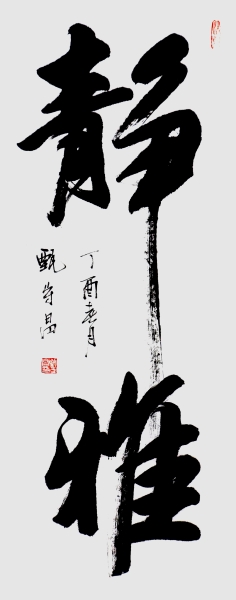 静雅
丁酉春月
甄守昌